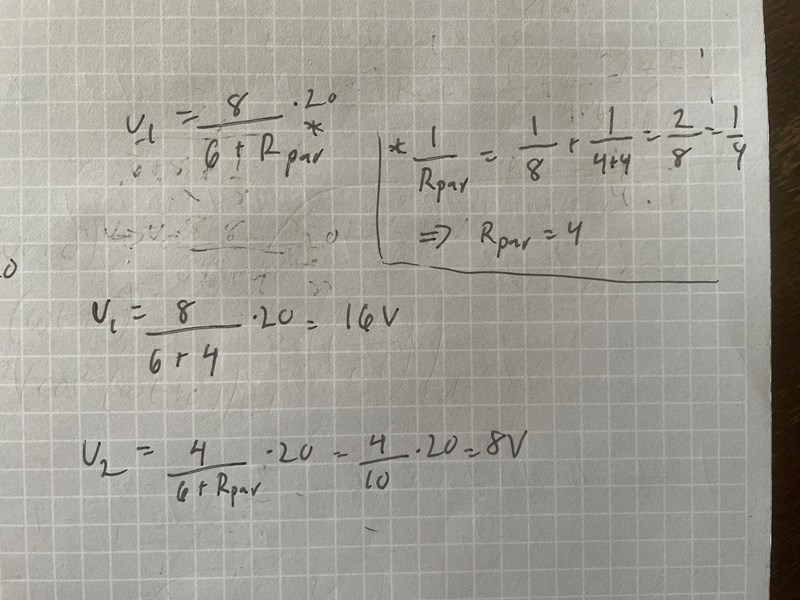 V₁ = 8 / (6 + Rpar*) · 20
* 1/Rpar = 1/8 + 1/(4+4) = 2/8 = 1/4
=> Rpar = 4
V₁ = 8 / (6 + 4) · 20 = 16V
V₂ = 4 / (6 + Rpar) · 20 = 4/10 · 20 = 8V